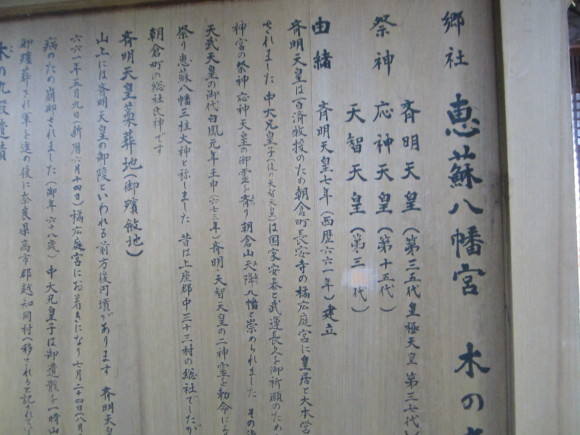 郷社 恵蘇八幡宮 木の
祭神 斉明天皇(第三五代皇極天皇 第三七代)
応神天皇(第十五代)
天智天皇(第三 代)
由緒 斉明天皇七年(西歴六六一年)建立
斉明天皇は百済救援のため朝倉町長安寺の橘広庭宮に皇居と大本営
されました 中大兄皇子(後の天智天皇)は国家安泰と武運長久を御祈願のため
神宮の祭神 応神天皇の御霊を斉り朝倉山天降八幡と崇められました その
天武天皇の御代白鳳元年壬申(六七三年)斉明・天智天皇の二神霊を勅命に
祭り恵蘇八幡三柱大神と称しました 昔は上座郡中三十三村の総社でしたが
朝倉町の総社氏神です
斉明天皇藁葬地(御殯斂地)
山上には斉明天皇の御陵といわれる前方後円墳があります 斉明天皇
六六一年五月九日(新暦六月十四日)橘広庭宮にお着きになり七月二十四日(八月
病のため崩御されました(御年六十八歳)中大兄皇子は御遺骸を一時山
御殯葬され軍を還の後に奈良県高市郡越知岡村(移されると記され
木の丸殿遺蹟